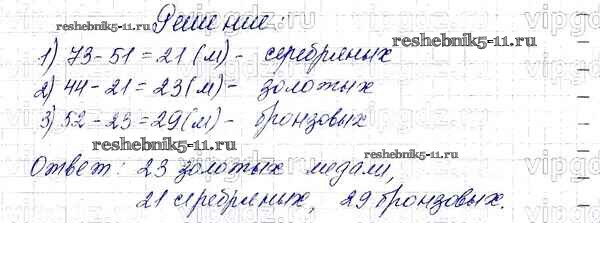 Решение:
reshebnik5-11.ru
1) 73-51 = 21 (м) - серебряных
2) 44-21 = 23 (м) - золотых
3) 52-23 = 29 (м) - бронзовых
reshebnik5-11.ru
Ответ: 23 золотых медали,
reshebnik5-11.ru
21 серебряных, 29 бронзовых.